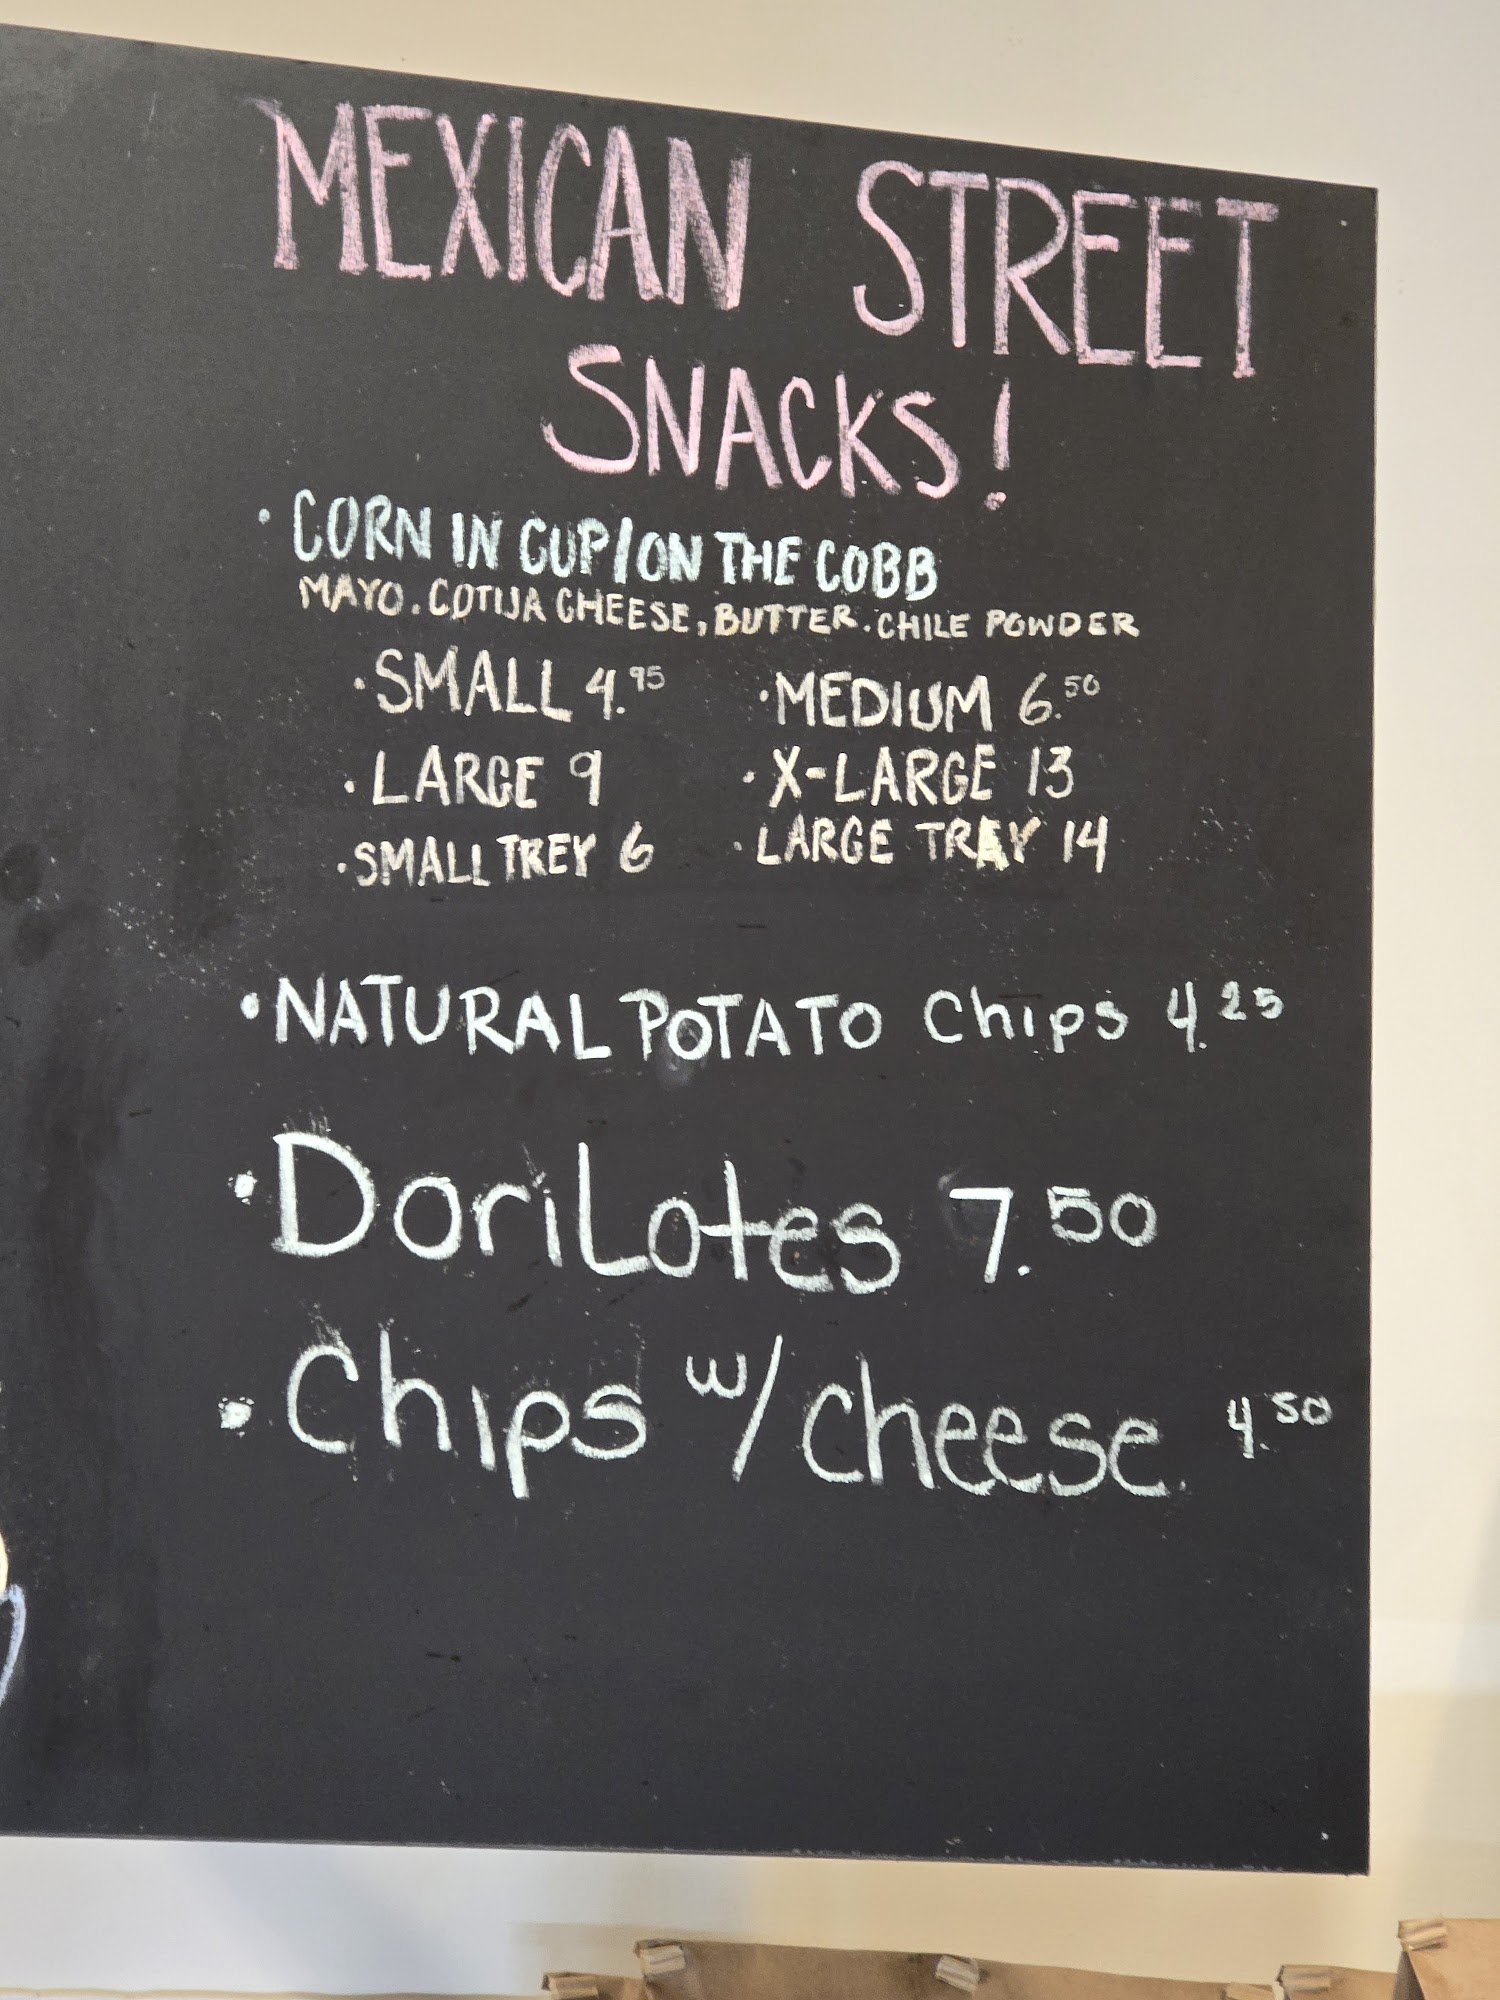 MEXICAN STREET
SNACKS!
• CORN IN CUP/ON THE COBB
MAYO. COTIJA CHEESE, BUTTER. CHILE POWDER
• SMALL 4.95 • MEDIUM 6.50
• LARGE 9 • X-LARGE 13
• SMALL TREY 6 • LARGE TRAY 14
• NATURAL POTATO Chips 4.25
• DoriLotes 7.50
• Chips w/cheese 4.50